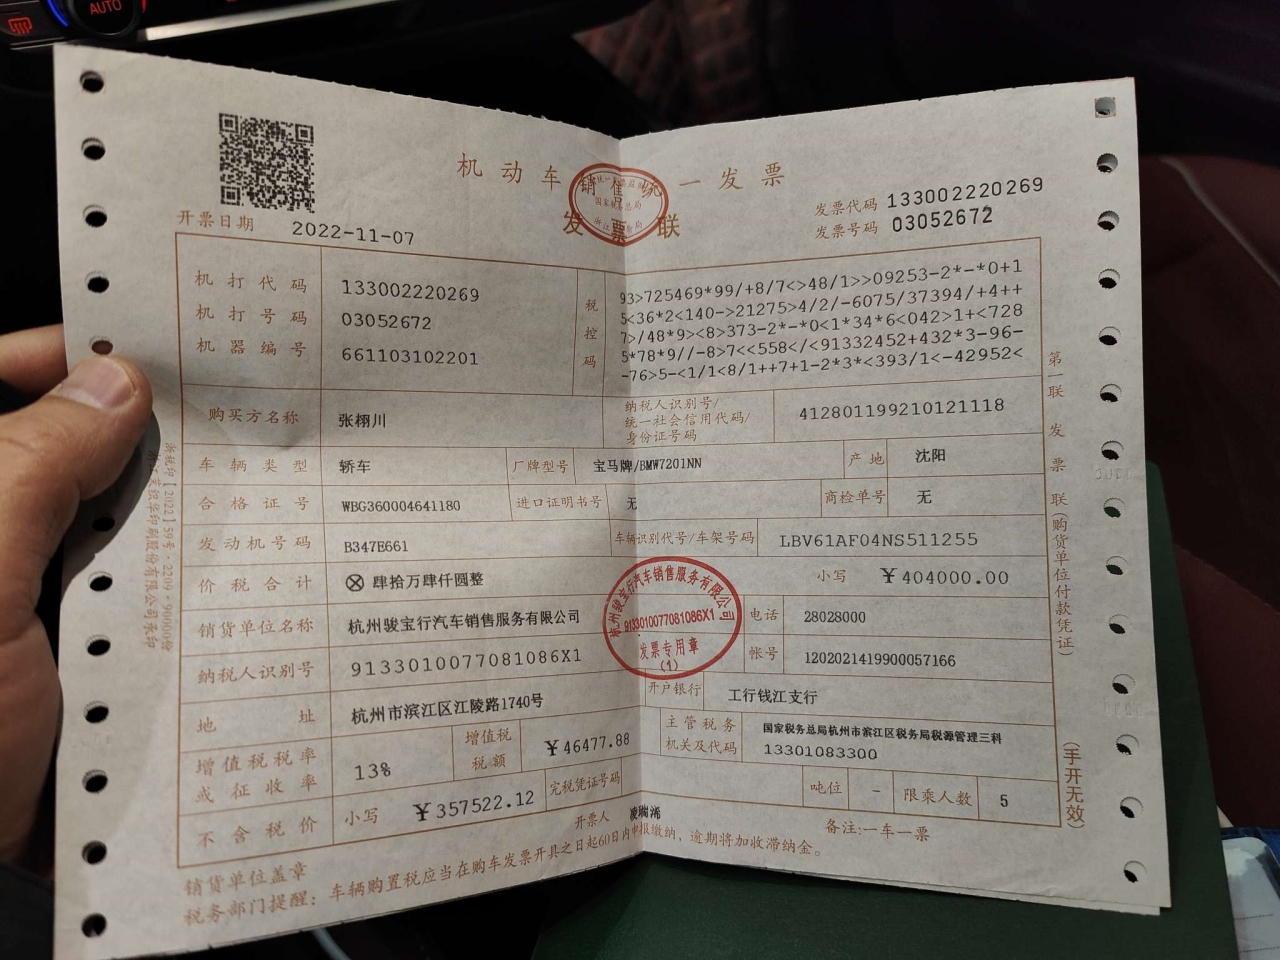 AUTO
机动车销售统一发票
发票联
发票代码 133002220269
发票号码 03052672
开票日期 2022-11-07
机打代码 133002220269
机打号码 03052672
机器编号 661103102201
税控码
93>725469*99/+8/7<>48/1>>09253-2*-*0+1
5<36*2<140->21275>4/2/-6075/37394/+4++
7>/48*9><8>373-2*-*0<1*34*6<042>1+<728
5*78*9//-8>7<<558</<91332452+432*3-96-
-76>5-<1/1<8/1++7+1-2*3*<393/1<-42952<
购买方名称 张栩川
纳税人识别号/
统一社会信用代码/
身份证号码
412801199210121118
车辆类型 轿车 厂牌型号 宝马牌/BMW7201NN 产地 沈阳
合格证号 WBG360004641180 进口证明书号 无 商检单号 无
发动机号码 B347E661 车辆识别代号/车架号码 LBV61AF04NS511255
价税合计 ⊗肆拾万肆仟圆整 小写 ￥404000.00
销货单位名称 杭州骏宝行汽车销售服务有限公司 电话 28028000
纳税人识别号 9133010077081086X1 帐号 1202021419900057166
地址 杭州市滨江区江陵路1740号 开户银行 工行钱江支行
增值税税率
或征收率
13%
增值税
税额
￥46477.88
主管税务
机关及代码
国家税务总局杭州市滨江区税务局税源管理三科
13301083300
不含税价 小写 ￥357522.12 完税凭证号码 吨位 - 限乘人数 5
销货单位盖章 开票人 备注:一车一票
税务部门提醒：车辆购置税应当在购车发票开具之日起60日内申报缴纳、逾期将加收滞纳金。
第一联 发票联(购货单位付款凭证)
(手开无效)
杭州骏宝行汽车销售服务有限公司
9133010077081086X1
发票专用章
(1)
国家税务总局